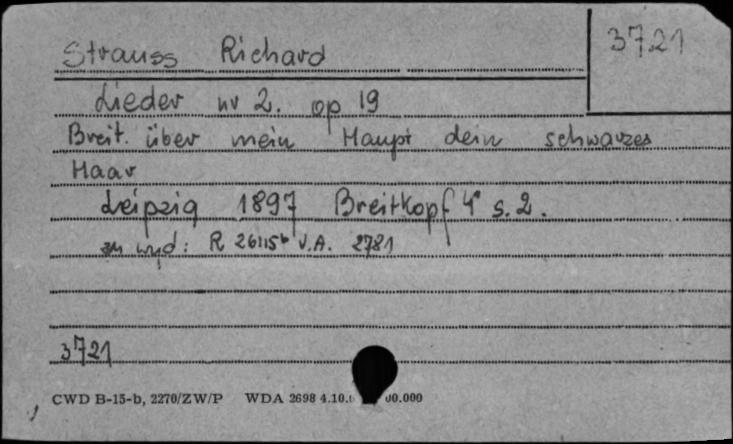 Strauss Richard
3721
Lieder nr 2. op 19
Breit. über mein Haupt dein schwarzes
Haar
Leipzig 1897 Breitkopf 4° s. 2.
zn wyd: R 26115b V.A. 2781
3721
CWD B-15-b, 2270/ZW/P WDA 2698 4.10. 00.000